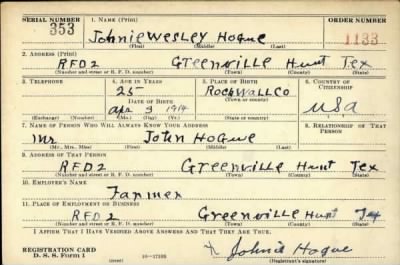 SERIAL NUMBER 1. NAME (Print) ORDER NUMBER
353 Johnie Wesley Hogue 1133
(First) (Middle) (Last)
2. ADDRESS (Print)
RFD2 Greenville Hunt Tex
(Number and street or R. F. D. number) (Town) (County) (State)
3. TELEPHONE 4. AGE IN YEARS 5. PLACE OF BIRTH 6. COUNTRY OF CITIZENSHIP
25 Rockwall Co
DATE OF BIRTH (Town or county) USA
Apr 3 1914
(Exchange) (Number) (Mo.) (Day) (Yr.) (State or country)
7. NAME OF PERSON WHO WILL ALWAYS KNOW YOUR ADDRESS 8. RELATIONSHIP OF THAT PERSON
Mr John Hogue
(Mr., Mrs., Miss) (First) (Middle) (Last)
9. ADDRESS OF THAT PERSON
RFD2 Greenville Hunt Tex
(Number and street or R. F. D. number) (Town) (County) (State)
10. EMPLOYER'S NAME
Farmer
11. PLACE OF EMPLOYMENT OR BUSINESS
RFD2 Greenville Hunt Tex
(Number and street or R. F. D. number) (Town) (County) (State)
I AFFIRM THAT I HAVE VERIFIED ABOVE ANSWERS AND THAT THEY ARE TRUE.
REGISTRATION CARD Johnie Hogue
D. S. S. Form 1 16—17105 (Registrant's signature)